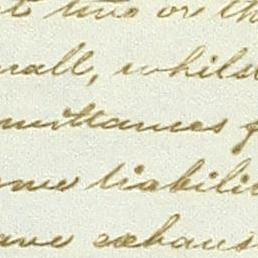 two or th
mall, whilst
mittances f
ome liabiliti
ave exhaus